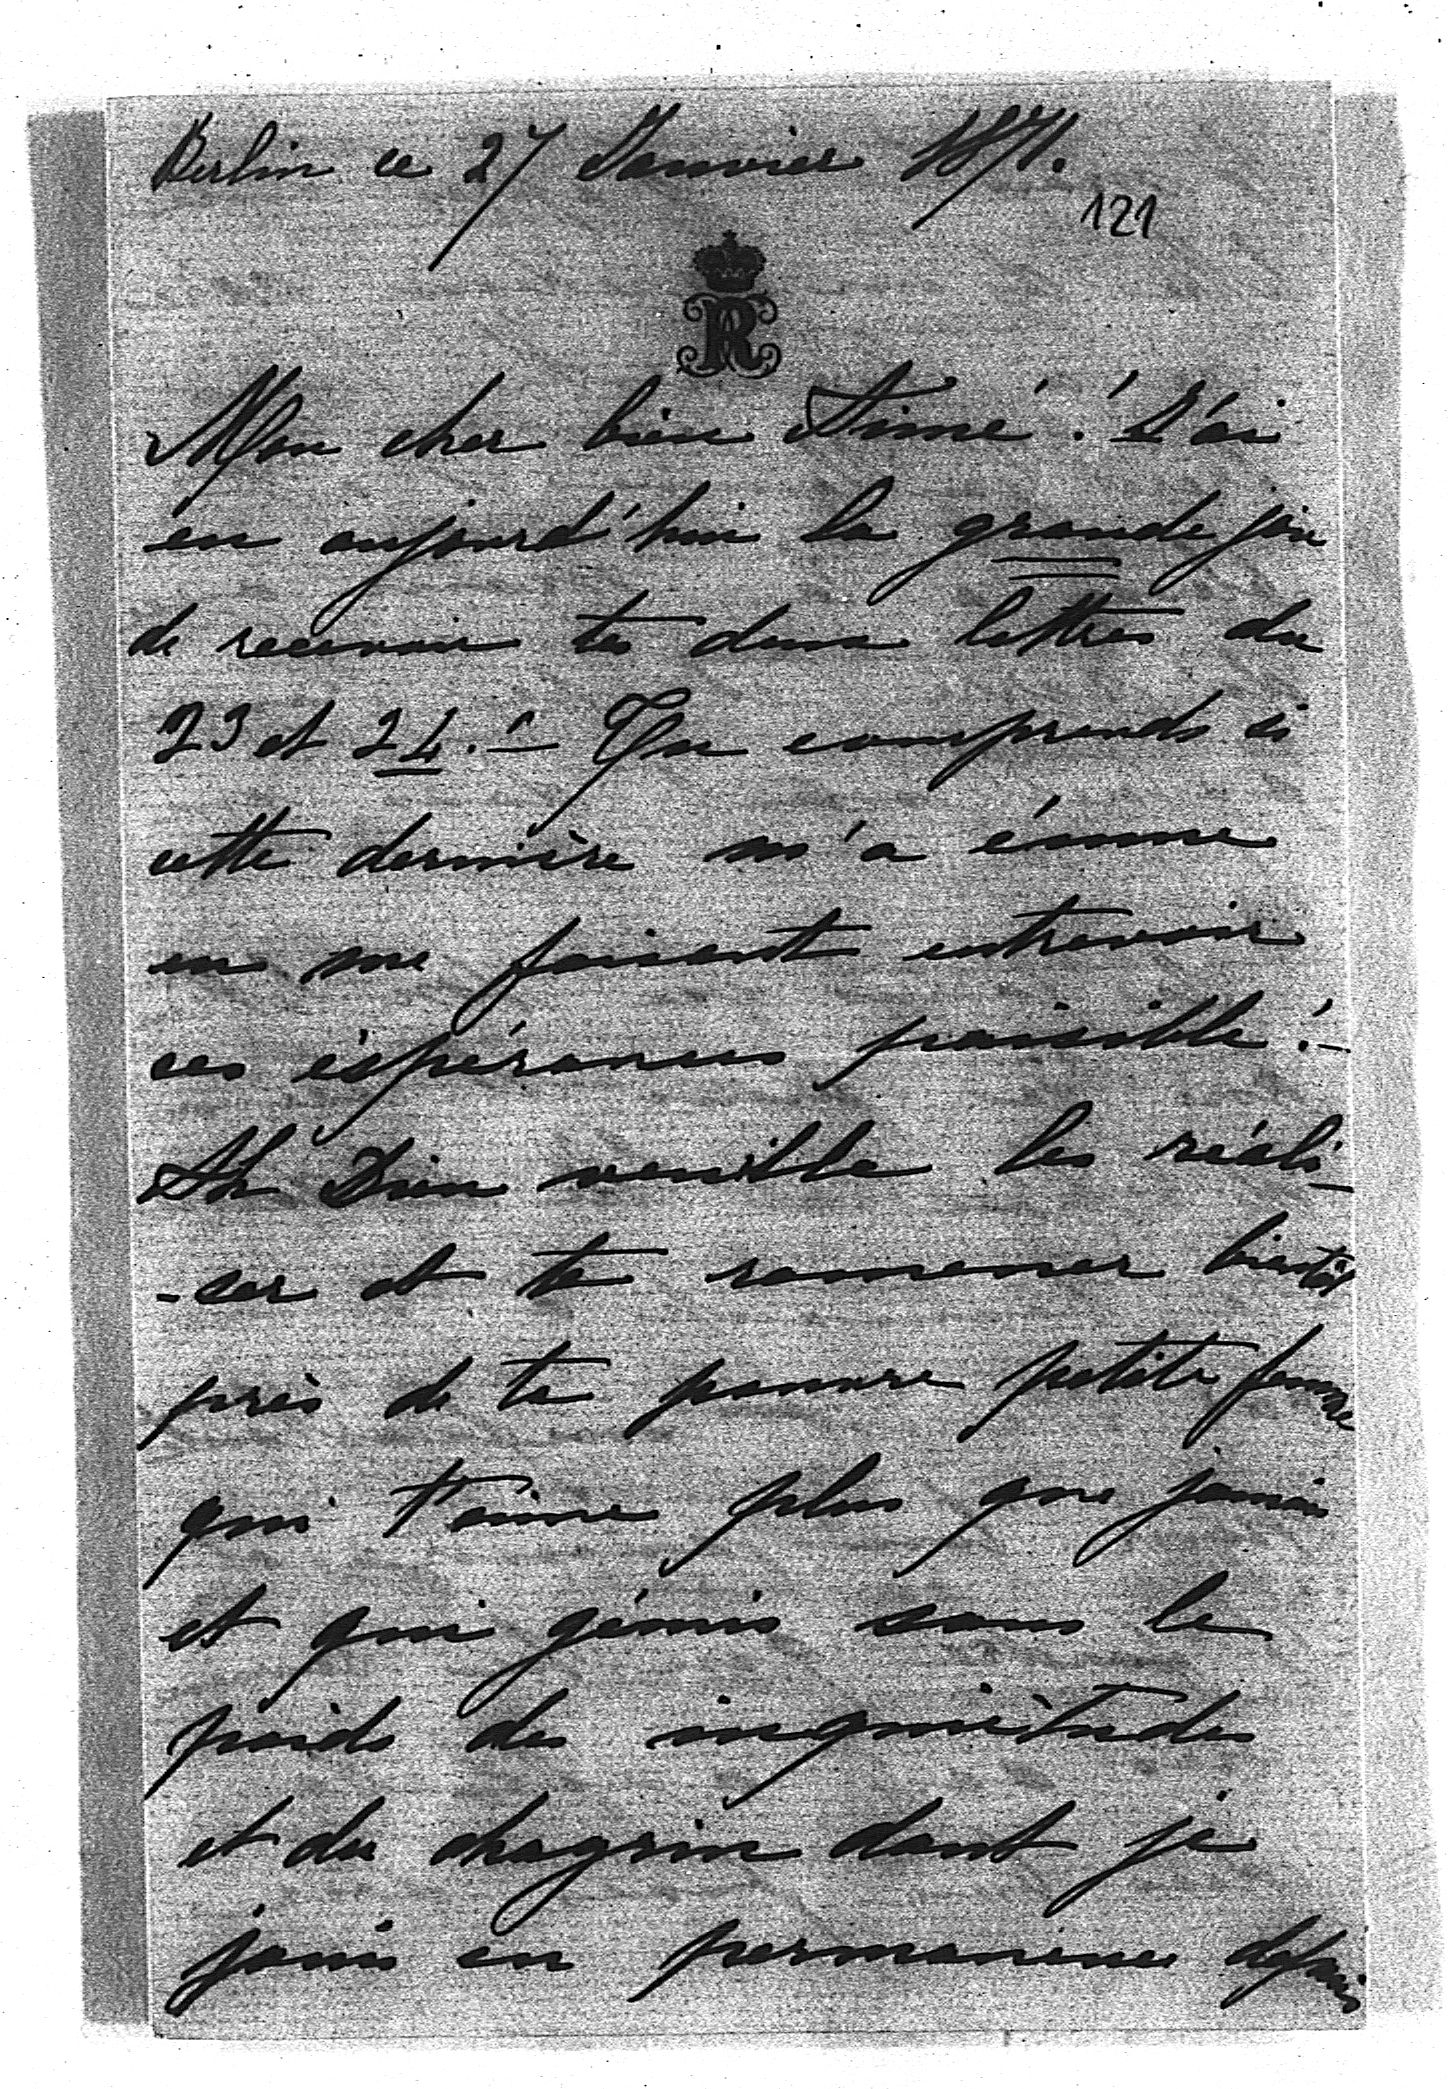 Berlin ce 27 Janvier 1871.
121
R
Mon cher bien Aimé! J'ai
eu aujourd'hui la grande joie
de recevoir tes deux lettres du
23 et 24. – Tu comprends si
cette dernière m'a émue
en me faisant entrevoir
ces éspérances paisible! –
Ah Dieu veuille les réali-
-ser et te ramener bientôt
près de ta pauvre petite femme
qui t'aime plus que jamais
et qui gémis sous le
poids des inquiètudes
et du chagrin dont je
jouis en permanence depuis